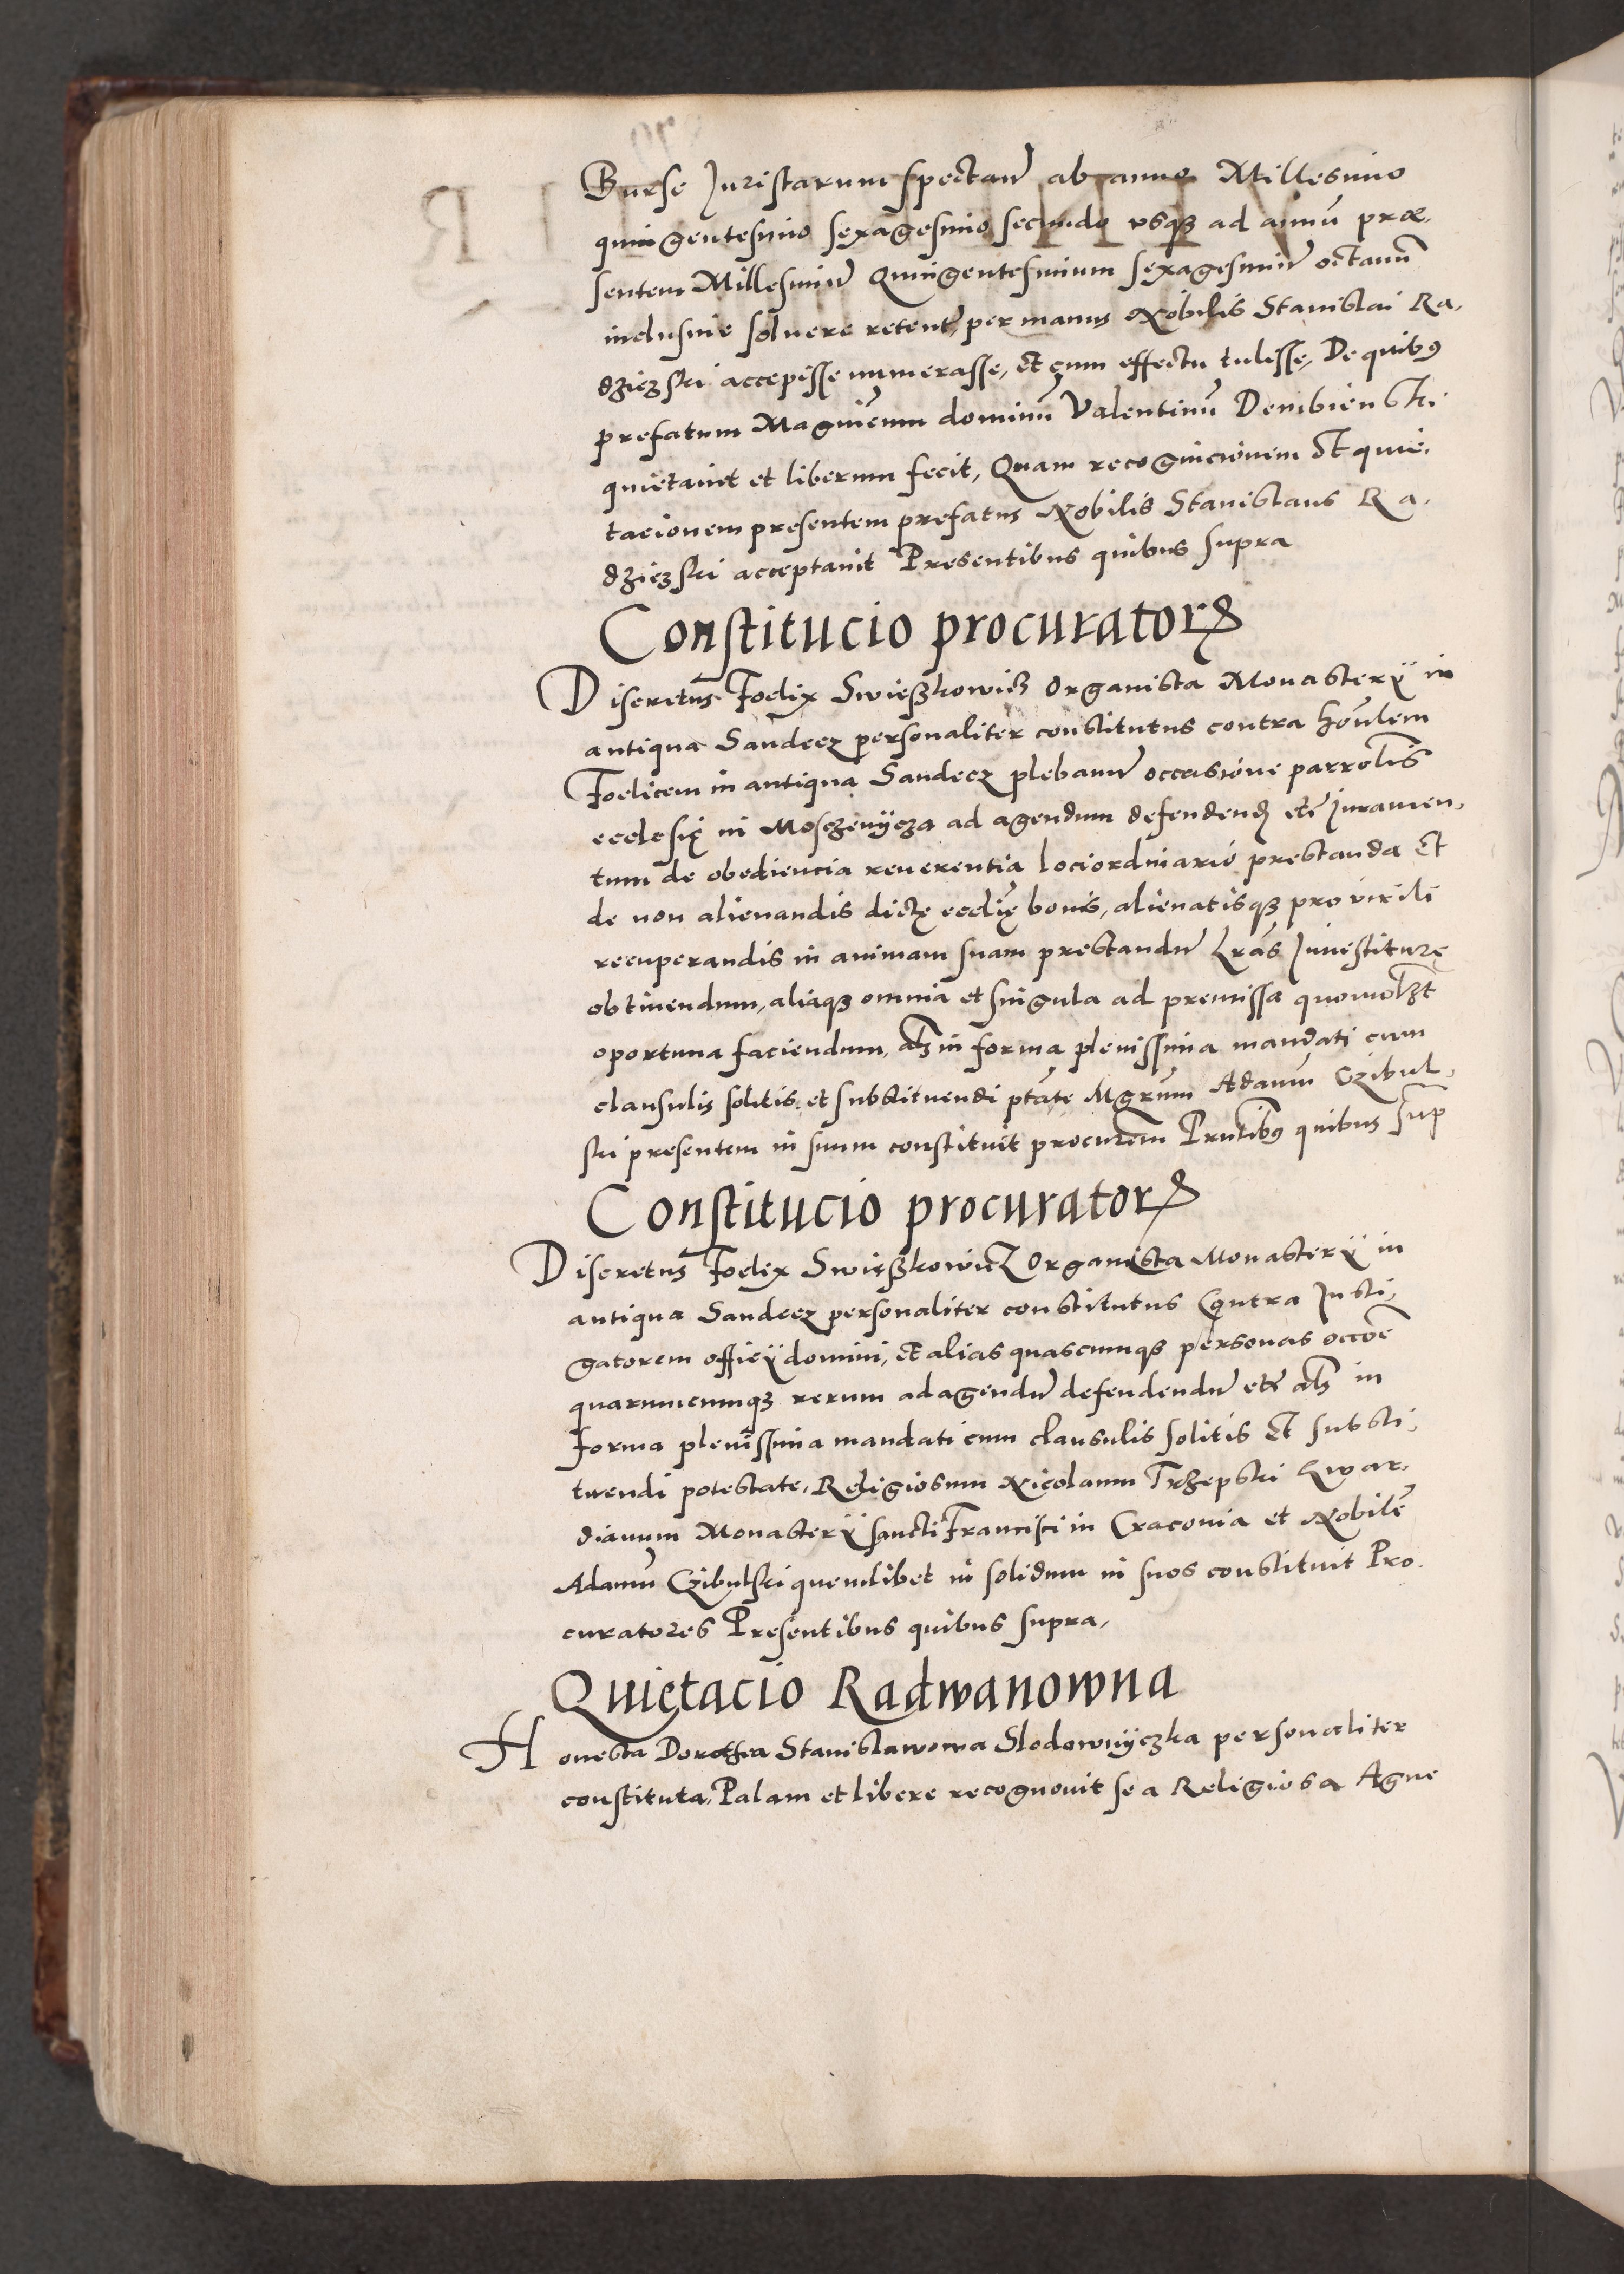 Burse Juristarum spectan̄ ab anno Millesimo
quingentesimo sexagesimo secundo usqꝫ ad annū præ,
sentem Millesimū Quingentesimum sexagesimū octauū
inclusiue soluere retent̄, per manus Nobilis Stanislai Ra,
dziezski accepisse numerasse, et cum effectu tulisse, De quibꝰ
prefatum Magnicum dominū Valentinū Dembienski
quietauit et liberum fecit, Quam recognicionem Et quie,
tacionem presentem prefatus Nobilis Stanislaus Ra,
dziezski acceptauit Presentibus quibus supra
Constitucio procuratorꝭ
Discretus Foelix Swieszkowicz Organista Monasterÿ in
antiqua Sandecz personaliter constitutus contra honlem
Foelicem in antiqua Sandecz plebanū occasione parrolis
ecclesię in Mosczenÿcza ad agendum defendendꝭ etc̄ Juramen,
tum de obediencia reuerentia lociordinario prestanda Et
de non alienandis dictę ecclię bonis, alienatisqꝫ pro virili
recuperandis in animam suam prestandū Lrās Inuestiturę
obtinendum, aliaqꝫ omnia et singula ad premissa quomolꝫt
oportuna faciendum, alꝫ in forma plenissima mandati cum
clausulis solitis et substituendi ptāte Mgrum Adamū Czibul,
ski presentem in suum constituit procurem Prntibꝰ quibus sup
Constitucio procuratorꝭ
Discretus Foelix Swięszkowicz Organista Monasterÿ in
antiqua Sandecz personaliter constitutus Contra Insti,
gatorem officÿ domini, et alias quascumqꝫ personas occōe
quarumcumqꝫ rerum ad agendū defendendū etc̄ alꝫ in
forma plenissima mandati cum clausulis solitis Et substi,
tuendi potestate, Religiosum Nicolaum Trzepski Gwar,
dianum Monasterÿ sancti Francisci in Cracouia et Nobilē
Adamū Czibulski quemlibet in solidum in suos constituit Pro
curatores Presentibus quibus supra,
Quietacio Radwanowna
Honesta Dorothea Stanislawowa Slodownÿczka personaliter
constituta, Palam et libere recognouit se a Religiosa Agne